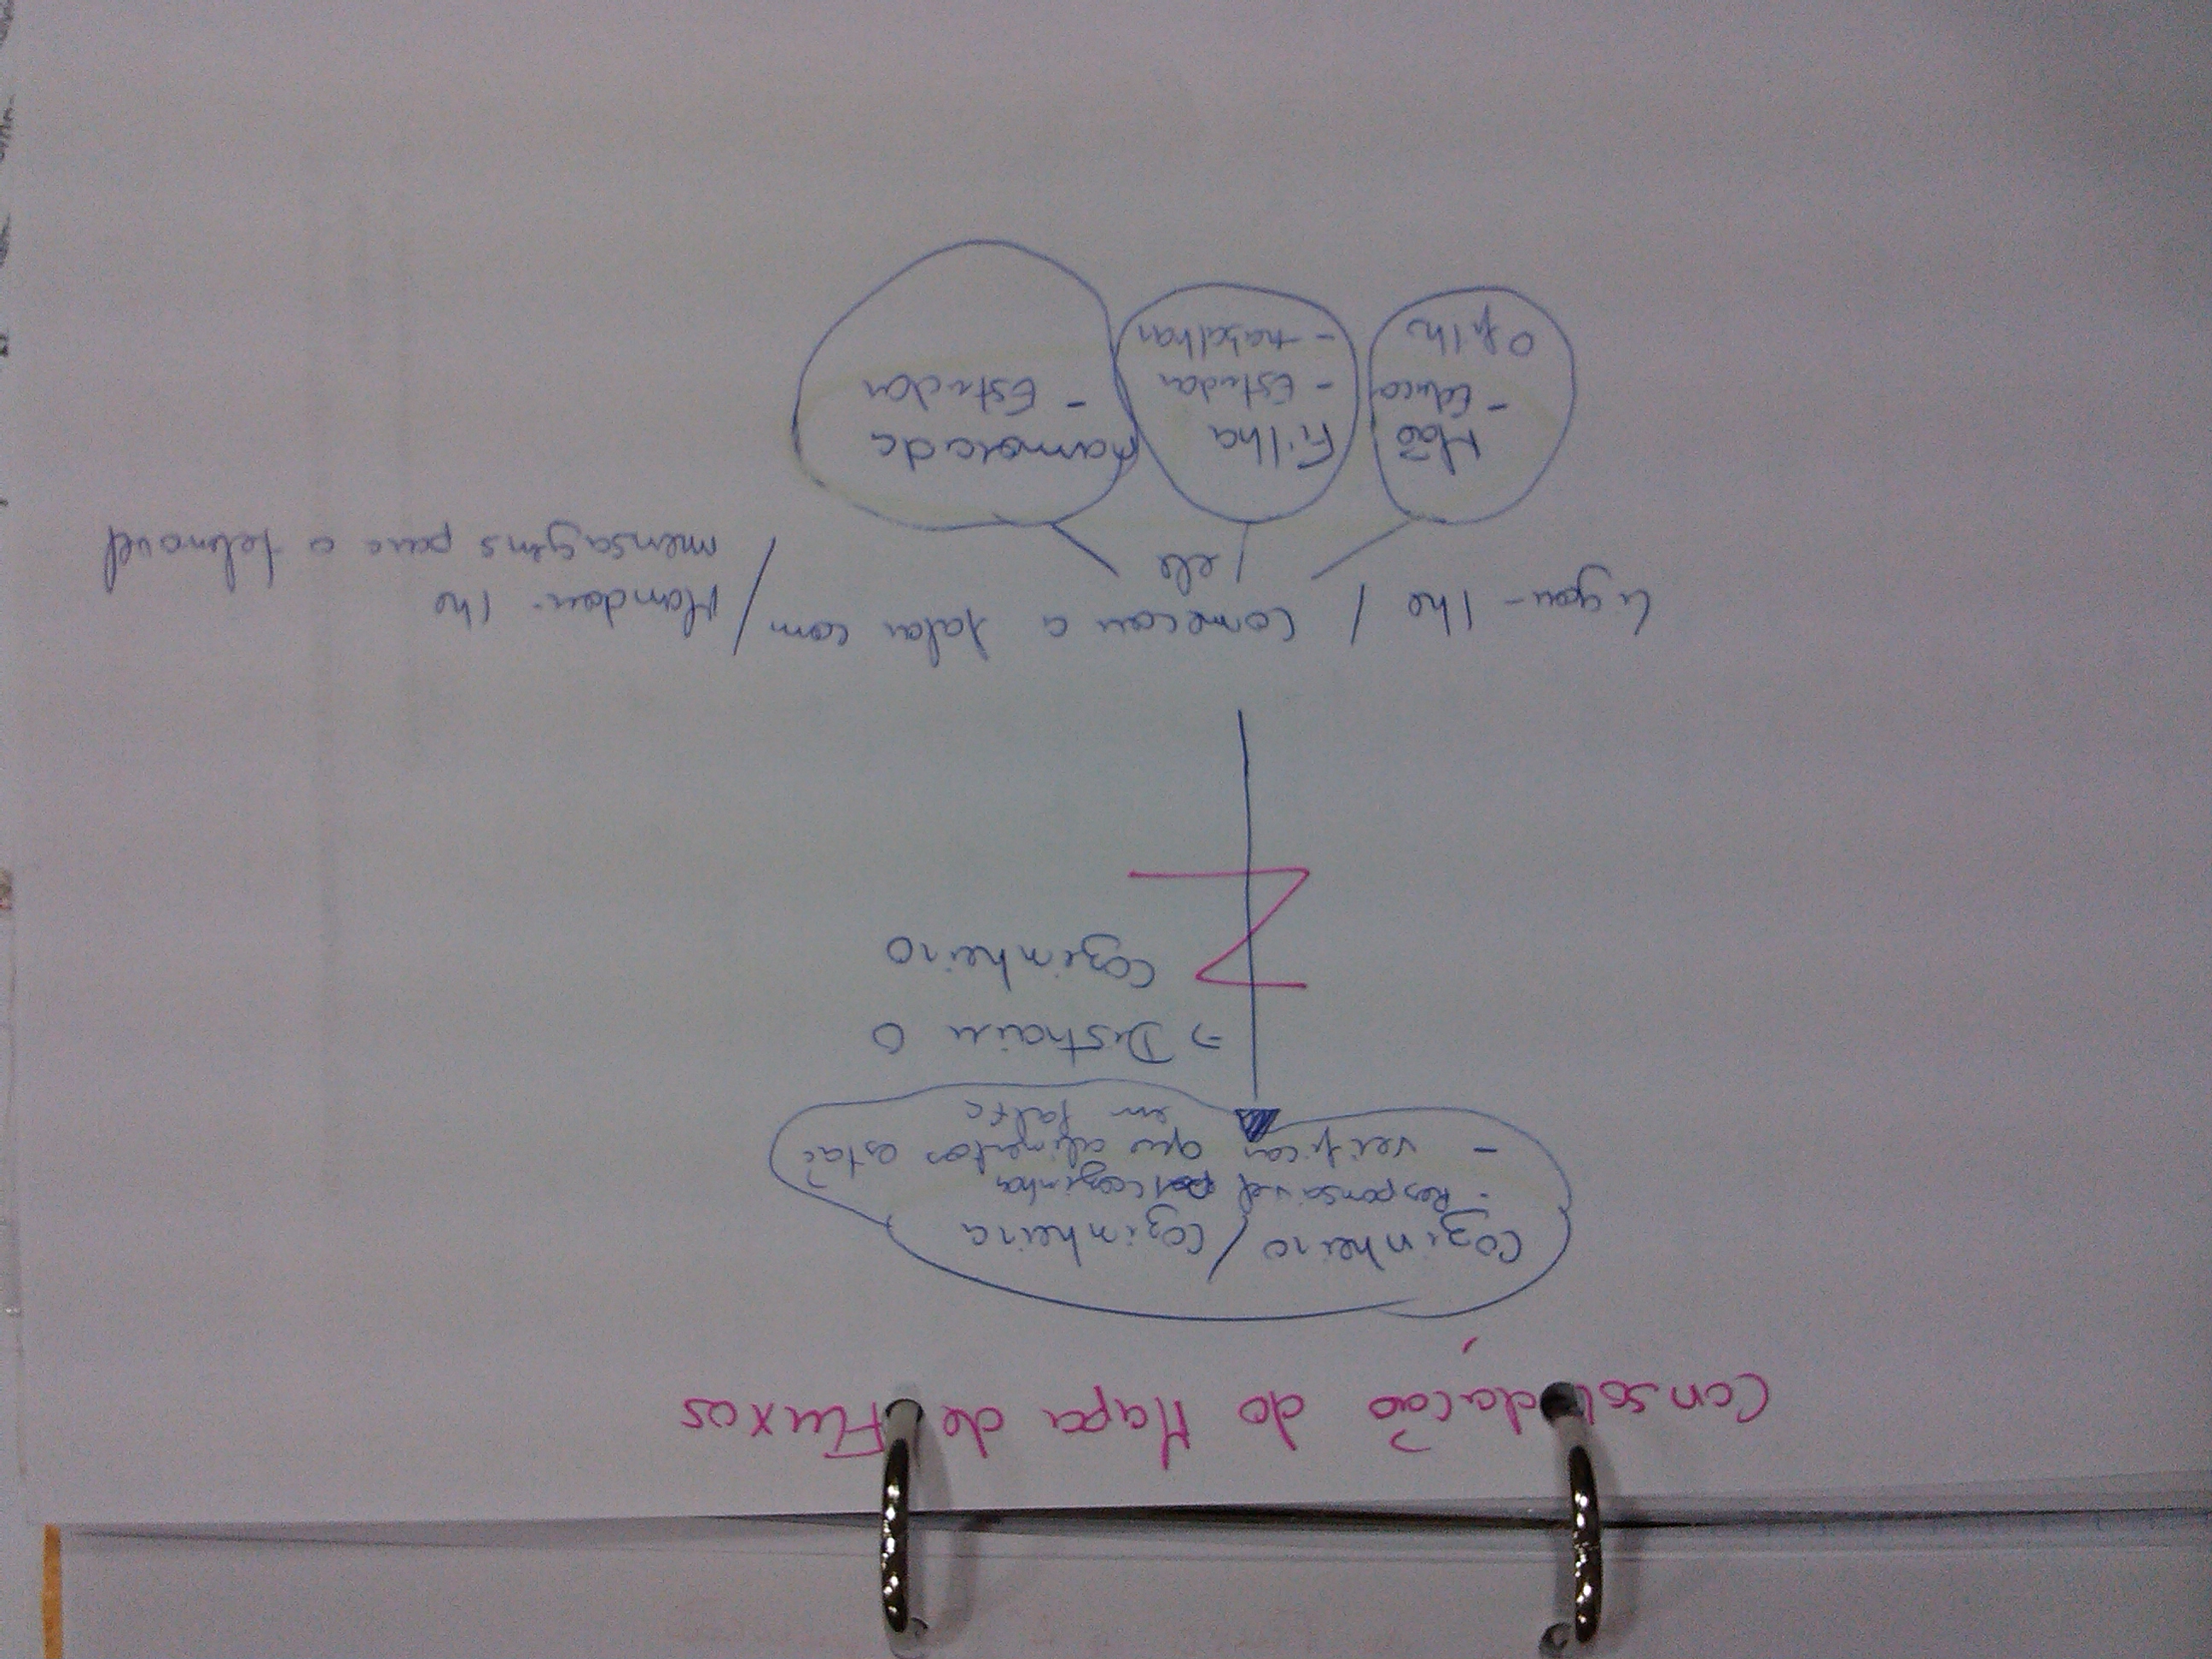 Consolidação do Mapa de Fluxos
Cozinheiro / Cozinheira
- Responsavel pel cozinha
- verificar que alimentos estaõ
em falta
⇒ Distraiu o
Cozinheiro
Ligou-lhe / Começou a falar com / Mandou-lhe
ele
mensagens para o telemovel
Maõ
- Educar
o filho
Filha
- Estudar
- trabalhar
namorada
- Estudar